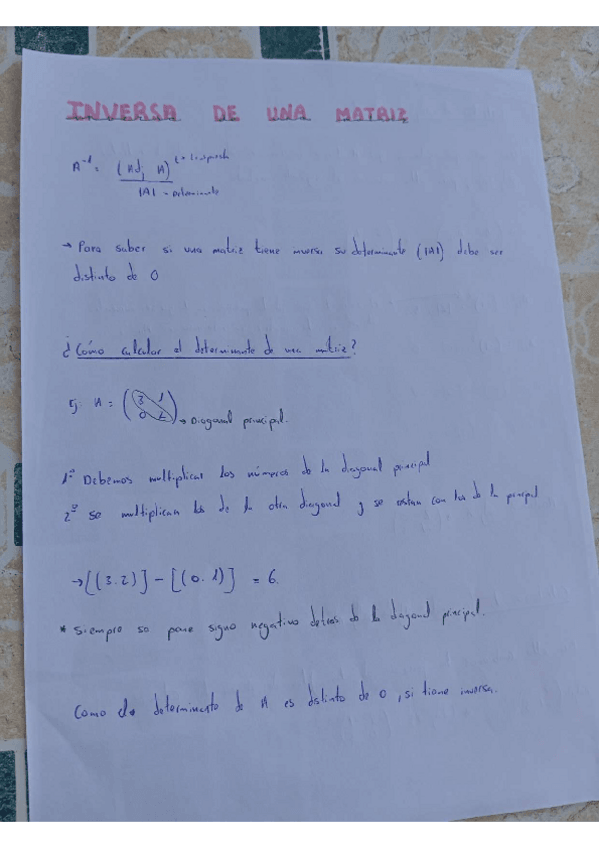 INVERSA DE UNA MATRIZ
A⁻¹ = (Adj A)ᵗ = traspuesta
|A| → Determinante
→ Para saber si una matriz tiene inversa su determinante (|A|) debe ser
distinto de 0
¿Cómo calcular el determinante de una matriz?
Ej: A = (3 1
0 2) → Diagonal principal.
1º Debemos multiplicar los números de la diagonal principal
2º se multiplican los de la otra diagonal y se restan con los de la principal
→ [(3.2)] - [(0.1)] = 6.
* Siempre se pone signo negativo detrás de la diagonal principal.
Como el determinante de A es distinto de 0, si tiene inversa.